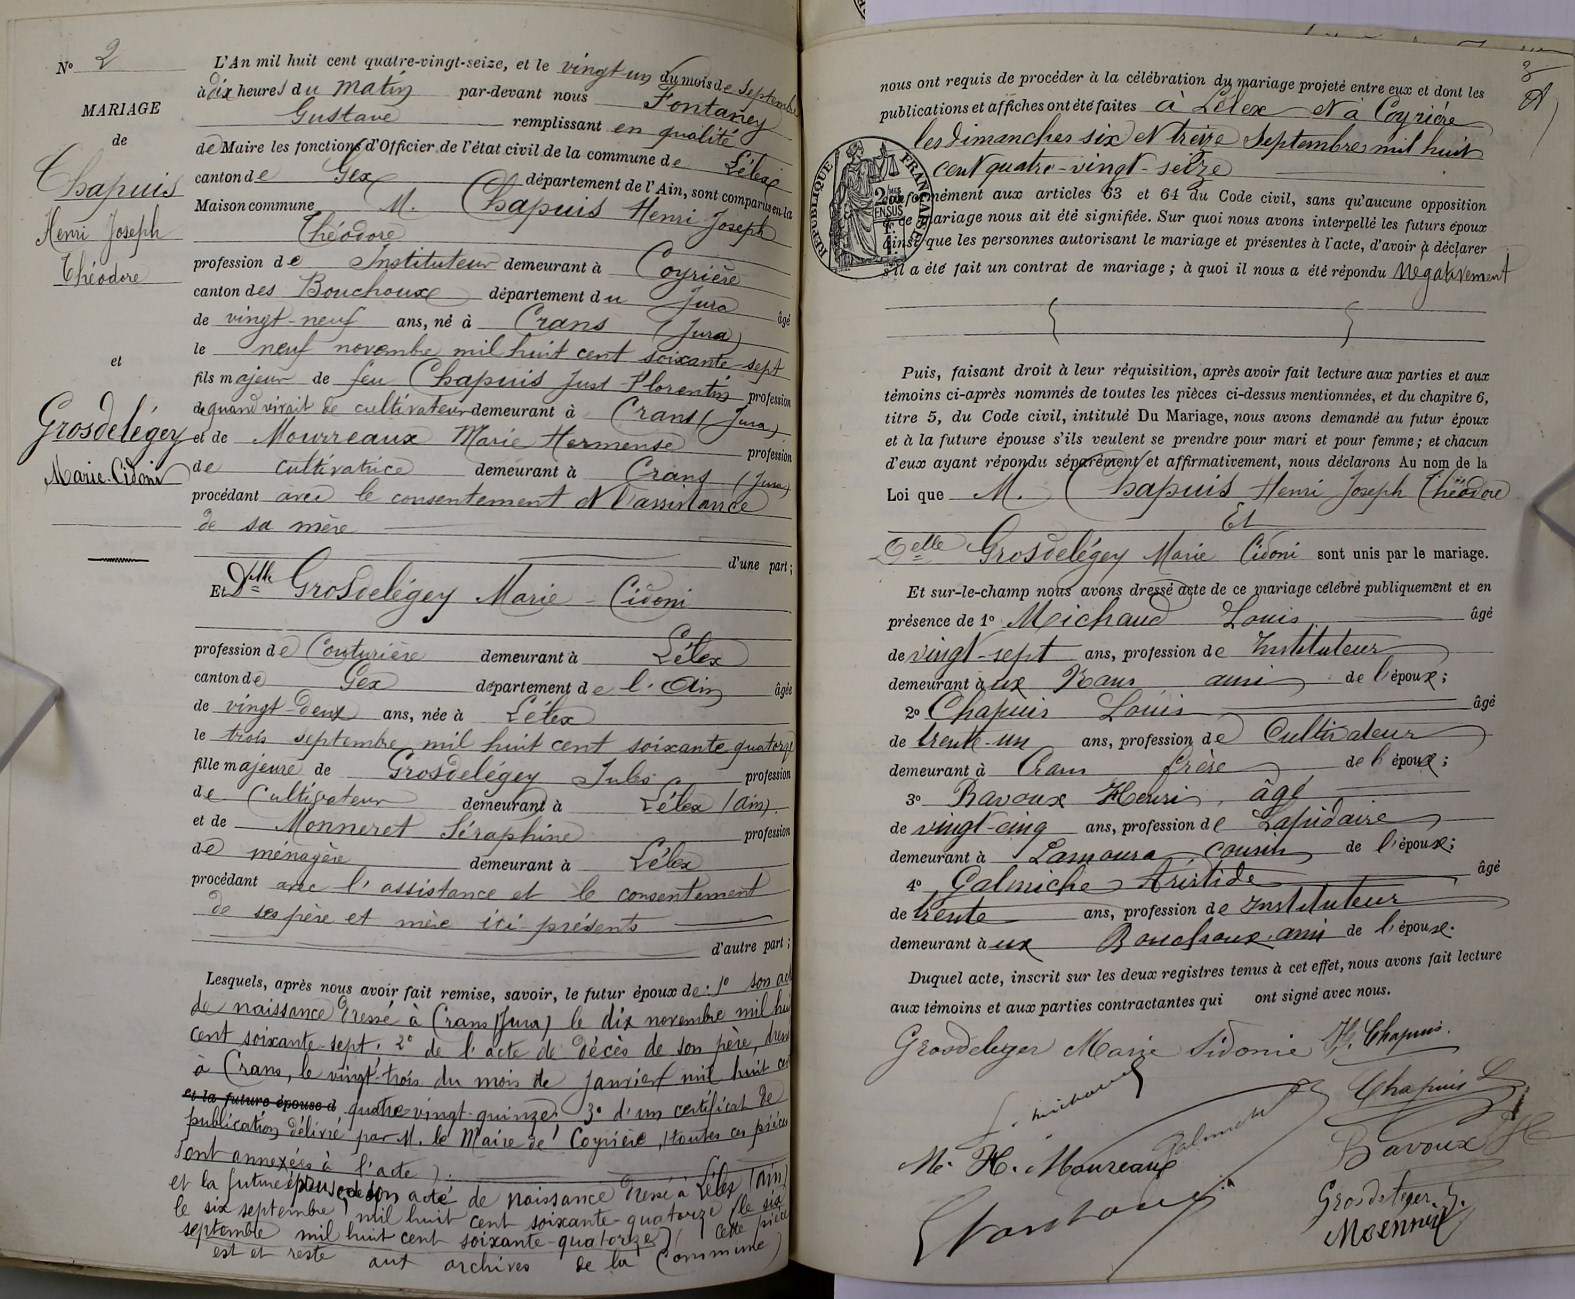 Nº 2
MARIAGE
de
Chapuis
Henri Joseph
Théodore
et
Grosdelégey
Marie-Cidoni
L'An mil huit cent quatre-vingt-seize, et le vingt-un du mois de Septembre
à dix heures du matin par-devant nous Fontaney
Gustave remplissant en qualité
de Maire les fonctions d'Officier de l'état civil de la commune de Lélex
canton de Gex département de l'Ain, sont comparus en la
Maison commune M. Chapuis Henri Joseph
Théodore
profession de Instituteur demeurant à Coyrière
canton des Bouchoux département du Jura âgé
de vingt-neuf ans, né à Crans (Jura)
le neuf novembre mil huit cent soixante-sept
fils majeur de feu Chapuis Just-Florentin profession
de quand vivait de cultivateur demeurant à Crans (Jura)
et de Mourreaux Marie Hermense profession
de cultivatrice demeurant à Crans (Jura)
procédant avec le consentement et l'assistance
de sa mère
d'une part;
Et Dlle Grosdelégey Marie-Cidoni
profession de Couturière demeurant à Lélex
canton de Gex département de l'Ain âgée
de vingt-deux ans, née à Lélex
le trois septembre mil huit cent soixante quatorze
fille majeure de Grosdelégey Jules profession
de Cultivateur demeurant à Lélex (Ain).
et de Monneret Séraphine profession
de ménagère demeurant à Lélex
procédant avec l'assistance et le consentement
de ses père et mère ici présents
d'autre part;
Lesquels, après nous avoir fait remise, savoir, le futur époux de: 1º son acte
de naissance dressé à Crans (Jura) le dix novembre mil huit
cent soixante-sept. 2º de l'acte de décès de son père, dressé
à Crans, le vingt-trois du mois de janvier mil huit cent
et la future épouse d quatre-vingt-quinze. 3º d'un certificat de
publication délivré par M. le Maire de Coyrière, (toutes ces pièces
sont annexées à l'acte).
et la future épouse de son acte de naissance dressé à Lélex (Ain)
le six septembre mil huit cent soixante-quatorze (le six
septembre mil huit cent soixante-quatorze) (cette pièce
est et reste aux archives de la Commune)
nous ont requis de procéder à la célébration du mariage projeté entre eux et dont les
publications et affiches ont été faites à Lélex et à Coyrière
les dimanches six et treize Septembre mil huit
cent quatre-vingt-seize
RÉPUBLIQUE FRANÇAISE
conformément aux articles 63 et 64 du Code civil, sans qu'aucune opposition
à ce mariage nous ait été signifiée. Sur quoi nous avons interpellé les futurs époux
ainsi que les personnes autorisant le mariage et présentes à l'acte, d'avoir à déclarer
s'il a été fait un contrat de mariage; à quoi il nous a été répondu négativement
Puis, faisant droit à leur réquisition, après avoir fait lecture aux parties et aux
témoins ci-après nommés de toutes les pièces ci-dessus mentionnées, et du chapitre 6,
titre 5, du Code civil, intitulé Du Mariage, nous avons demandé au futur époux
et à la future épouse s'ils veulent se prendre pour mari et pour femme; et chacun
d'eux ayant répondu séparément et affirmativement, nous déclarons Au nom de la
Loi que M. Chapuis Henri Joseph Théodore
Et
Delle Grosdelégey Marie Cidoni sont unis par le mariage.
Et sur-le-champ nous avons dressé acte de ce mariage célébré publiquement et en
présence de 1º Michaud Louis âgé
de vingt-sept ans, profession de Instituteur
demeurant à ux ami de l'époux;
2º Chapuis Louis âgé
de trente-un ans, profession de Cultivateur
demeurant à Crans frère de l'époux;
3º Bavoux Henri, âgé
de vingt-cinq ans, profession de Lapidaire
demeurant à Lamoura cousin de l'époux;
4º Galmiche Aristide âgé
de trente ans, profession de Instituteur
demeurant à ux Bouchoux ami de l'époux.
Duquel acte, inscrit sur les deux registres tenus à cet effet, nous avons fait lecture
aux témoins et aux parties contractantes qui ont signé avec nous.
Grosdeleger Marie Sidonie H. Chapuis.
L. Michaud Galmiche Chapuis L
M. H. Moureaux Bavoux H
Fontaney Grosdeleger J.
Monneret